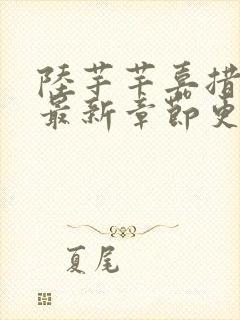 陸芋芊嘉措
最新章節更
夏尾